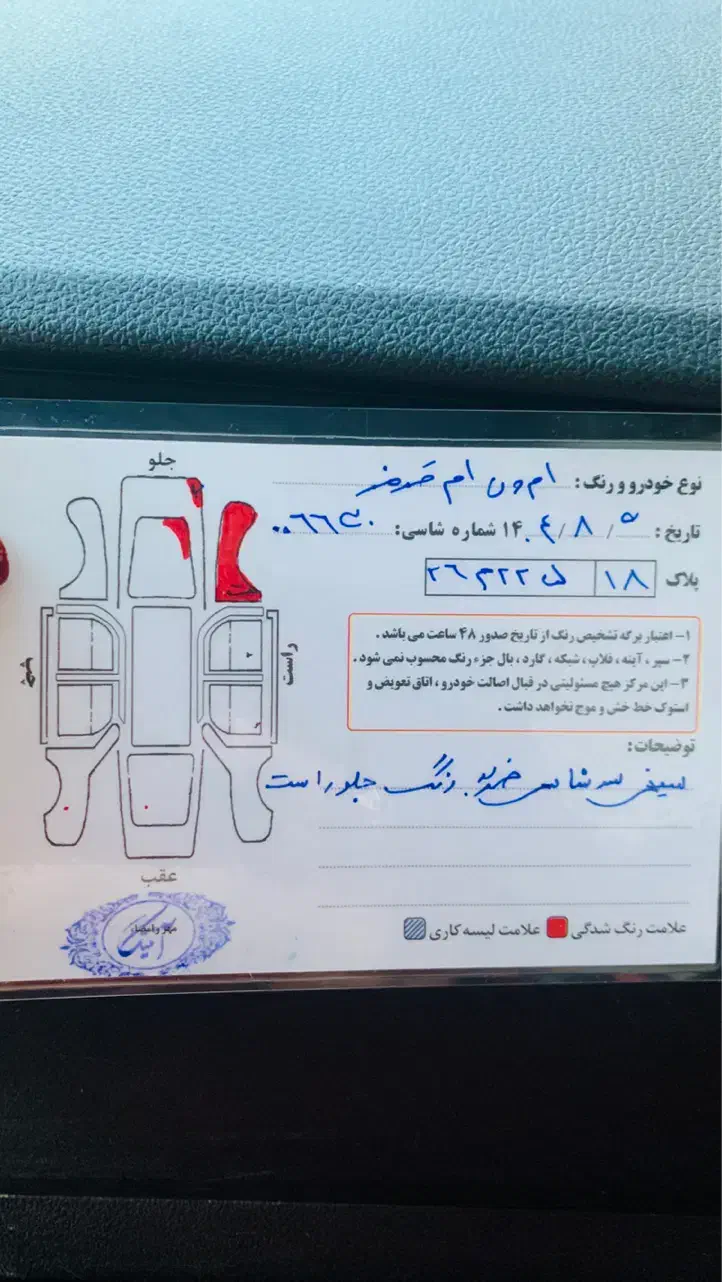 جلو
نوع خودرو و رنگ: ام وی ام قرمز
تاریخ: ۱۴۰۴/۸/۵ شماره شاسی:
پلاک ۱۸
۱- اعتبار برگه تشخیص رنگ از تاریخ صدور ۴۸ ساعت می باشد.
۲- سپر، آینه، قلاب، شبکه، گارد، بال جزء رنگ محسوب نمی شود.
۳- این مرکز هیچ مسئولیتی در قبال اصالت خودرو، اتاق تعویض و
استوک خط خش و موج نخواهد داشت.
راست
چپ
توضیحات:
سینی سر شاسی ضربه رنگ جلو راست
عقب
علامت رنگ شدگی علامت لیسه کاری
مهر و امضاء